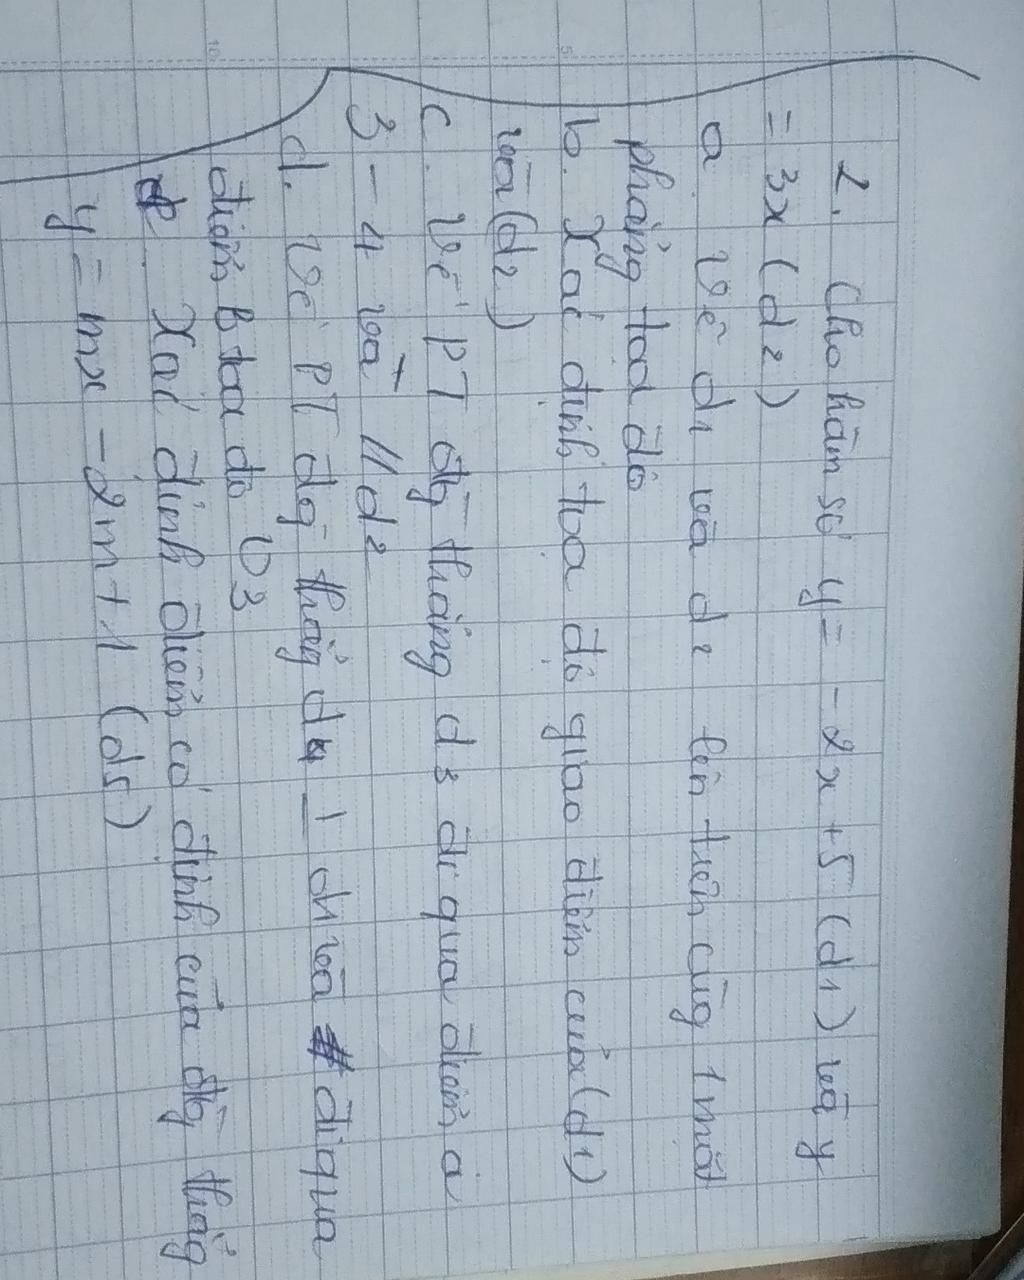 2. Cho hàm số y = -2x + 5 (d1) và y
= 3x (d2)
a. Vẽ d1 và d2 lên trên cùng 1 một
phảng toạ độ
b. Xác định toạ độ giao điểm cuả (d1)
và (d2)
c. Vẽ PT đg thảng d3 đi qua điểm a
3 - 4 và // d2
d. Vẽ PT đg thẳg d4 ⊥ d1 và đi qua
điểm B toa độ 0 3
e. Xác định điểm cố định của đg thẳg
y = mx - 2m + 1 (d5)
10
5